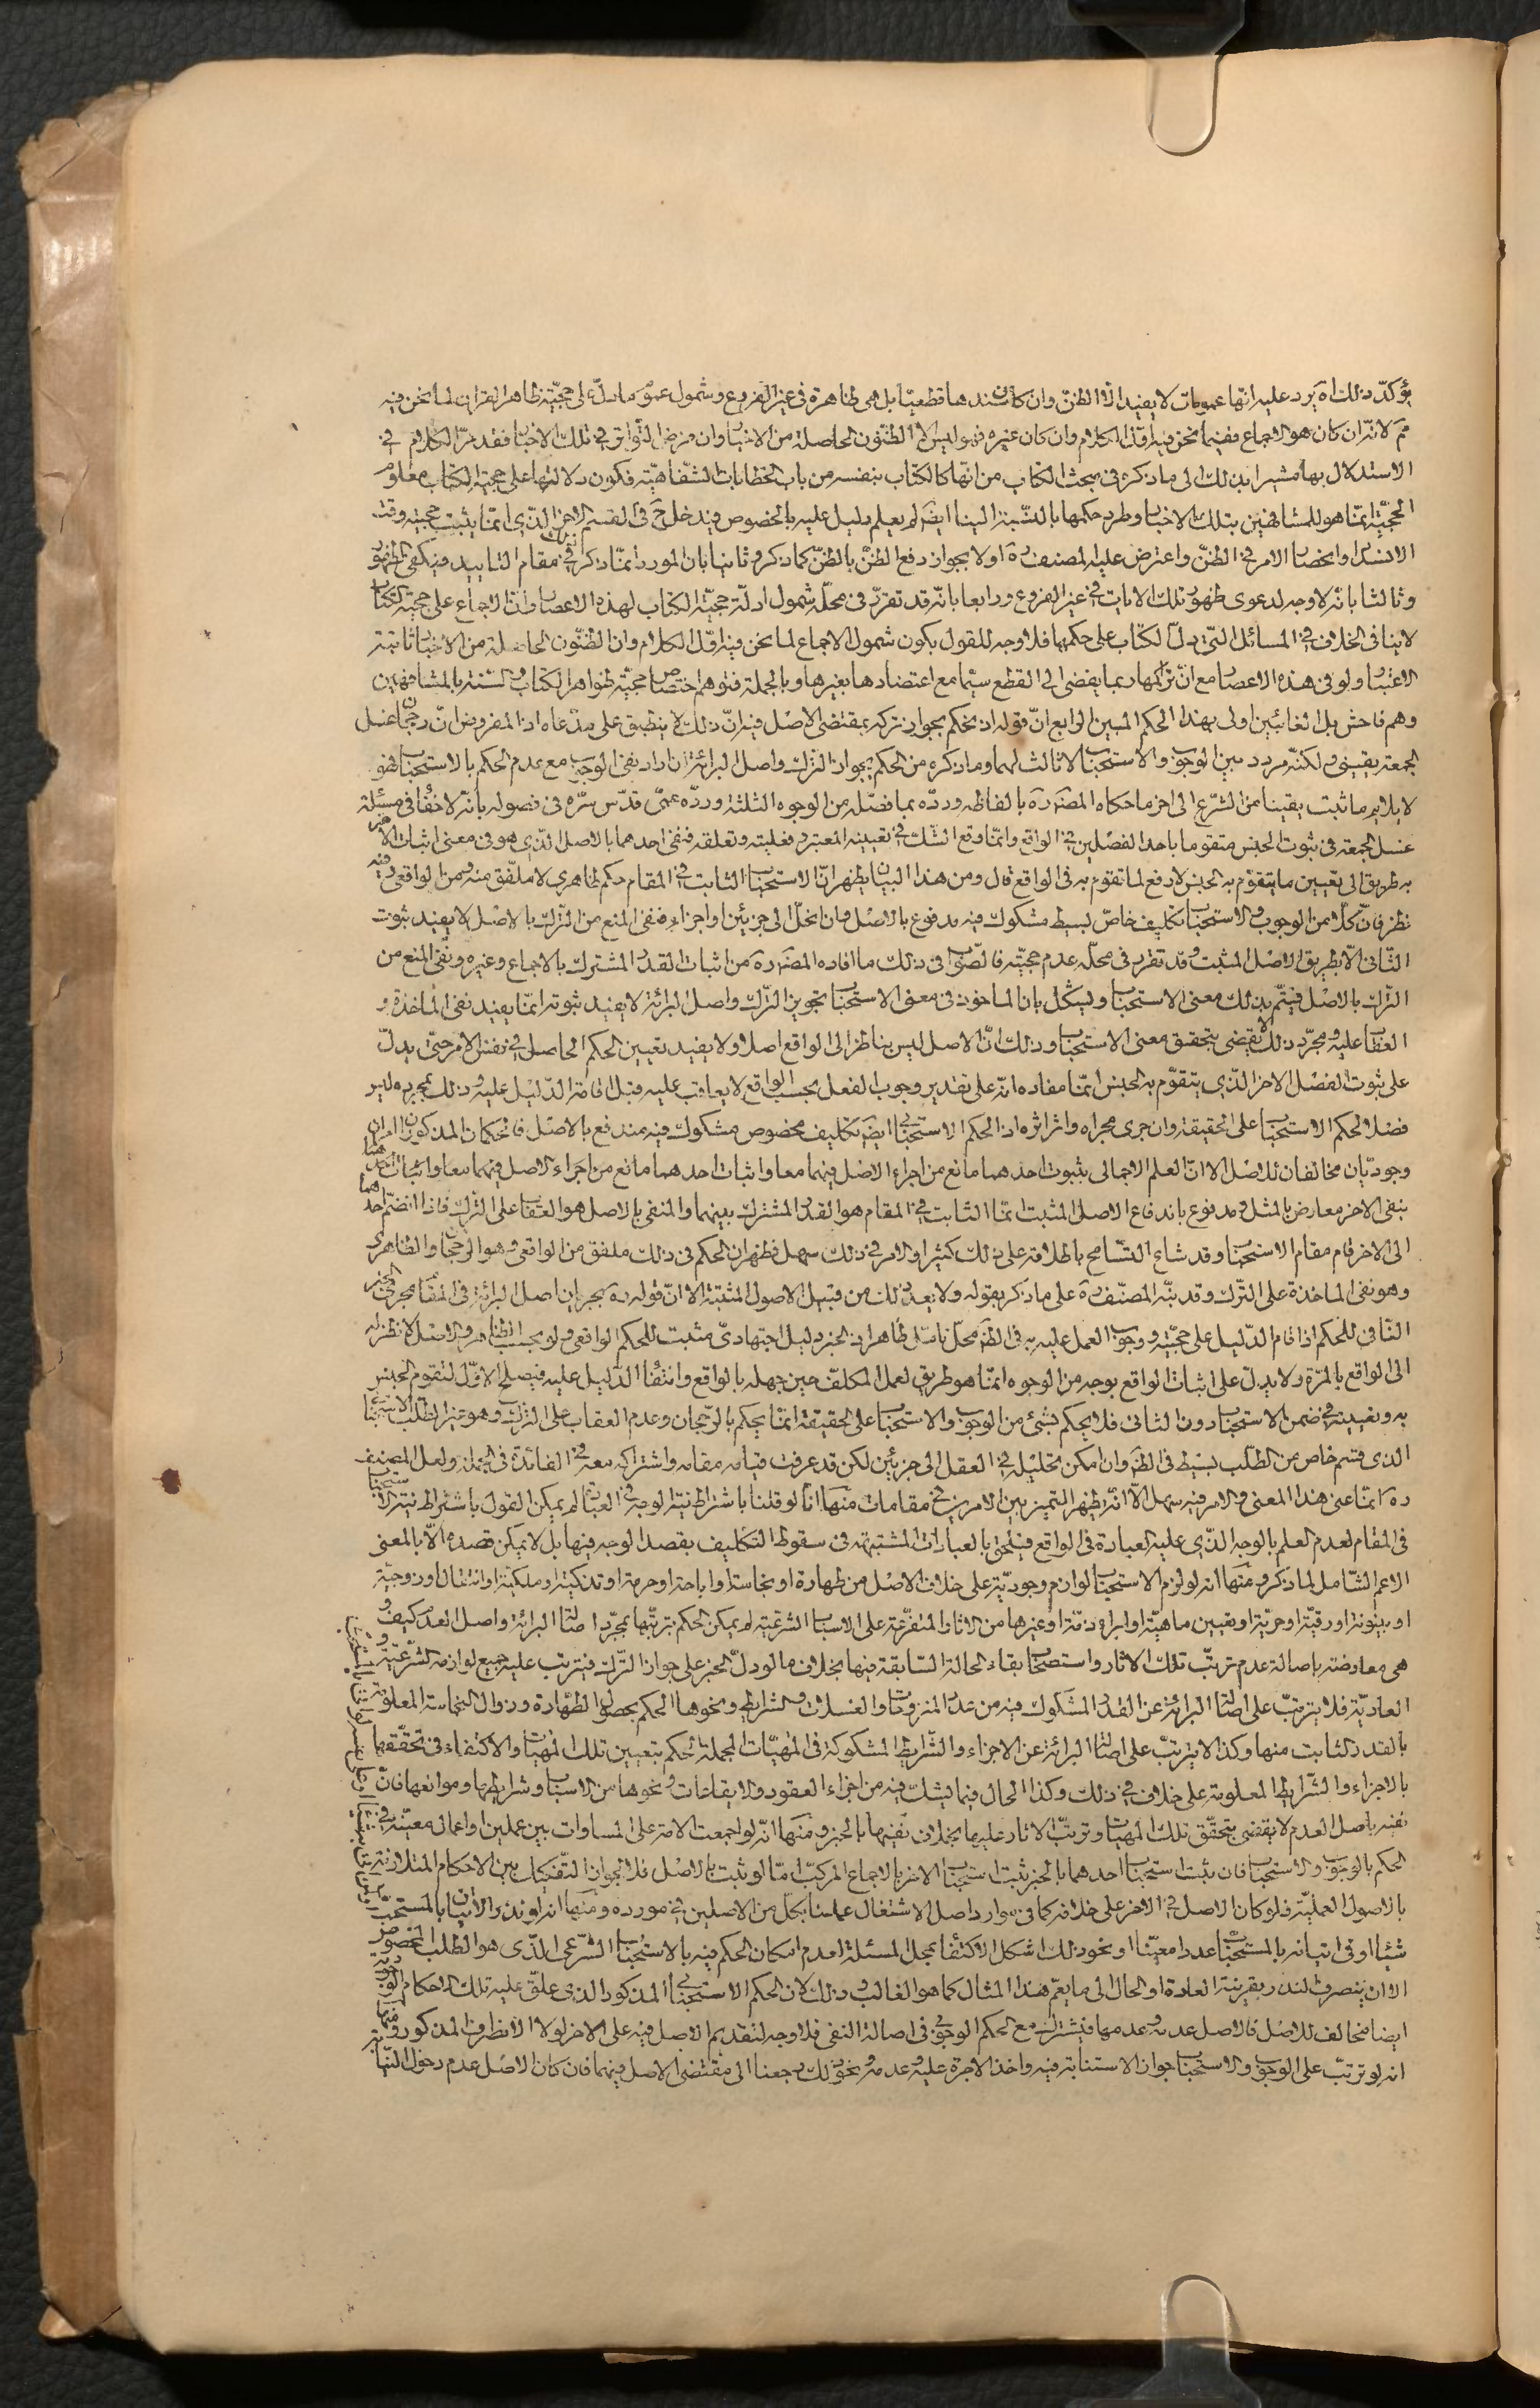 يؤكد ذلك اه يرد عليه انها عمومات لا يفيد الا الظن وان كان سندها قطعيا بل هى ظاهرة فى غير الفروع وشمول عموم ما دل على حجية ظاهر القران لما نحن فيه
مم لانه ان كان هو الاجماع ففيما نحن فيه اول الكلام وان كان غيره فهو ليس الا الظنون الحاصلة من الاخبار وان فرض التواتر فى تلك الاخبار فقد مر الكلام فى
الاستدلال بها مشيرا بذلك الى ما ذكره فى مبحث الكتاب من انها كالكتاب بنفسه من باب الخطابات الشفاهية فكون دلالتها على حجية الكتاب معلوم
الحجية انما هو للمشافهين بتلك الاخبار وطرد حكمها بالنسبة الينا ايضا لم يعلم دليل عليه بالخصوص فيدخل ح فى القسم الاخر الذى انما يثبت حجيته وقت
الانسداد وانحصار الامر فى الظن واعترض عليه المصنف ره اولا بجواز دفع الظن بالظن كما ذكره وثانيا بان المورد انما ذكره فى مقام التاييد فيكفى الظهور
وثالثا بانه لا وجه لدعوى ظهور تلك الايات فى غير الفروع ورابعا بانه قد تقرر فى محله شمول ادلة حجية الكتاب لهذه الاعصار وان الاجماع على حجية الكتاب
لا ينافى الخلاف فى المسائل التى دل الكتاب على حكمها فلا وجه للقول بكون شمول الاجماع لما نحن فيه اول الكلام وان الظنون الحاصلة من الاخبار ثابتة
الاعتبار ولو فى هذه الاعصار مع ان تراكمها ربما يفضى الى القطع سيما مع اعتضادها بغيرها وبالجملة فتوهم اختصاص حجية ظواهر الكتاب والسنة بالمشافهين
وهم فاحش بل الغائبين اولى بهذا الحكم المبين الرابع ان قوله اذ يحكم بجواز تركه بمقتضى الاصل فيه ان ذلك لا ينطبق على مدعاه اذ المفروض ان رجحان غسل
الجمعة يقينى ولكنه مردد بين الوجوب والاستحباب لا ثالث لهما وما ذكره من الحكم بجواز الترك واصل البرائة ان اراد نفى الوجوب مع عدم الحكم بالاستحباب فهو
لا يلايم ما ثبت يقينا من الشرع الى اخر ما حكاه المصنف ره بالفاظه ورده بما فصله من الوجوه الثلثة ورده عمى قدس سره فى فصوله بانه لا خفاء فى مسئلة
غسل الجمعة فى ثبوت الجنس متقوما باحد الفصلين فى الواقع وانما وقع الشك فى تعيينه المعتبر فى فعليته وتعلقه فنفى احدهما بالاصل الذى هو فى معنى اثبات الاخر
به طريق الى تعيين ما يتقوم به الجنس لا دفع لما تقوم به فى الواقع قال ومن هذا البيان يظهر ان الاستحباب الثابت فى المقام حكم ظاهرى لا ملفق منه ومن الواقعى وفيه
نظر فان كلا من الوجوب والاستحباب تكليف خاص بسيط مشكوك فيه مدفوع بالاصل فان انحل الى جزئين او اجزاء فنفى المنع من الترك بالاصل لا يفيد ثبوت
الثانى الا بطريق الاصل المثبت وقد تقرر فى محله عدم حجيته فالصواب فى ذلك ما افاده المصنف ره من اثبات القدر المشترك بالاجماع وغيره ونفى المنع من
الترك بالاصل فيتم بذلك معنى الاستحباب ويشكل بان الماخوذ فى معنى الاستحباب تجويز الترك واصل البرائة لا يفيد ثبوته انما يفيد نفى المؤاخذة و
العقاب عليه ومجرد ذلك لا يقضى بتحقق معنى الاستحباب وذلك ان الاصل ليس بناظر الى الواقع اصلا ولا يفيد تعيين الحكم الحاصل فى نفس الامر حتى يدل
على ثبوت الفصل الاخر الذى يتقوم به الجنس انما مفاده انه على تقدير وجوب الفعل بحسب الواقع لا يعاقب عليه قبل اقامة الدليل عليه وذلك بمجرده ليس
فصلا لحكم الاستحباب على الحقيقة وان جرى مجراه واثر اثره اذ الحكم الاستحبابى ايضا تكليف مخصوص مشكوك فيه مندفع بالاصل فالحكمان المذكوران امران
وجوديان مخالفان للاصل الا ان العلم الاجمالى بثبوت احدهما مانع من اجراء الاصل فيهما معا واثبات احدهما مانع من اجراء الاصل فيهما معا واثبات احدهما
بنفى الاخر معارض بالمثل ومدفوع باندفاع الاصل المثبت انما الثابت فى المقام هو القدر المشترك بينهما والمنفى بالاصل هو العقاب على الترك فاذا انضم احدهما
الى الاخر قام مقام الاستحباب وقد شاع التسامح باطلاقه على ذلك كثيرا والامر فى ذلك سهل فظهر ان الحكم فى ذلك ملفق من الواقعى وهو الرجحان والظاهرى
وهو نفى المؤاخذة على الترك وقد نبه المصنف ره على ما ذكر بقوله ولا يعد ذلك من قبيل الاصول المثبتة الا ان قوله ره بجريان اصل البرائة فى المقام مجرى الخبر
النافى للحكم اذا قام الدليل على حجيته ووجوب العمل عليه به فى الظاهر محل تامل ظاهر اذ الخبر دليل اجتهادى مثبت للحكم الواقعى ولو بحسب الظاهر والاصل لا نظر له
الى الواقع بالمرة ولا يدل على اثبات الواقع بوجه من الوجوه انما هو طريق لعمل المكلف حين جهله بالواقع وانتفاء الدليل عليه فيصلح الاول لتقوم الجنس
به وتعيينه فى ضمن الاستحباب دون الثانى فلا يحكم بشئ من الوجوب والاستحباب على الحقيقة انما يحكم بالرجحان وعدم العقاب على الترك وهو غير الطلب الاستحبابى
الذى قسم خاص من الطلب بسيط فى الظاهر وان امكن تحليله فى العقل الى جزئين لكن قد عرفت قيامه مقامه واشتراكه معه فى الفائدة فى الجملة ولعل المصنف
ره انما عنى هذا المعنى والامر فيه سهل الا انه يظهر التميز بين الامرين فى مقامات منها انا لو قلنا باشتراط نية الوجه فى العبادة لم يمكن القول باشتراط نية الاستحباب
فى المقام لعدم العلم بالوجه الذى عليه العبادة فى الواقع فيلحق بالعبادات المشتبهة فى سقوط التكليف بقصد الوجه فيها بل لا يمكن قصده الا بالمعنى
الاعم الشامل لما ذكر ومنها انه لو لزم الاستحباب لوازم وجودية على خلاف الاصل من طهارة او نجاسة او اباحة او حرمة او تذكية او ملكية او انتقال او زوجية
او بينونة او رقية او حرية او تعيين ماهية او ابراء ذمة او غيرها من الاثار المتفرعة على الاسباب الشرعية لم يمكن الحكم بترتبها بمجرد اصالة البرائة واصل العدم كيف و
هى معارضة باصالة عدم ترتب تلك الاثار واستصحاب بقاء الحالة السابقة فيها بخلاف ما لو دل الخبر على جواز الترك فيترتب عليه جميع لوازمه الشرعية و
العادية فلا يترتب على اصالة البرائة عن القدر المشكوك فيه من عدد المنزوحات والغسلات والشرايط ونحوها الحكم بحصول الطهارة وزوال النجاسة المعلومة
بالقدر الثابت منها وكذا لا يترتب على اصالة البرائة عن الاجزاء والشرايط المشكوكة فى المهيات المجملة الحكم بتعيين تلك المهيات والاكتفاء فى تحققها
بالاجزاء والشرايط المعلومة على خلاف فى ذلك وكذا الحال فيما يشك فيه من اجزاء العقود والايقاعات ونحوها من الاسباب وشرايطها وموانعها فان
نفيه باصل العدم لا يقضى بتحقق تلك المهيات وترتب الاثار عليها بخلاف نفيها بالخبر ومنها انه لو اجمعت الامة على المساوات بين عملين او اعمال معينة فى
الحكم بالوجوب والاستحباب فان ثبت استحباب احدهما بالخبر ثبت استحباب الاخر بالاجماع المركب اما لو ثبت بالاصل فلا لجواز التفكيك بين الاحكام المتلازمة
بالاصول العملية فلو كان الاصل فى الاخر على خلافه كما فى موارد اصل الاشتغال عملنا بكل من الاصلين فى مورده ومنها انه لو نذر الاتيان بالمستحب
شيئا او فى اتيانه بالمستحبات عددا معينا او نحو ذلك اشكل الاكتفاء بمحل المسئلة لعدم امكان الحكم فيه بالاستحباب الشرعى الذى هو الطلب المخصوص
الا ان ينصرف النذر بقرينة العادة او الحال الى ما يعم هذا المثال كما هو الغالب وذلك لان الحكم الاستحبابى المذكور الذى علق عليه تلك الاحكام الوجودية
ايضا مخالف للاصل فالاصل عدمه وعدمها فيشترك مع الحكم الوجوبى فى اصالة النفى فلا وجه لتقديم الاصل فيه على الاخر لولا الانظراف المذكور ومنها
انه لو ترتب على الوجوب والاستحباب جواز الاستنابة فيه واخذ الاجرة عليه وعدمه ونحو ذلك رجعنا الى مقتضى الاصل فيهما فان كان الاصل عدم دخول النيابة